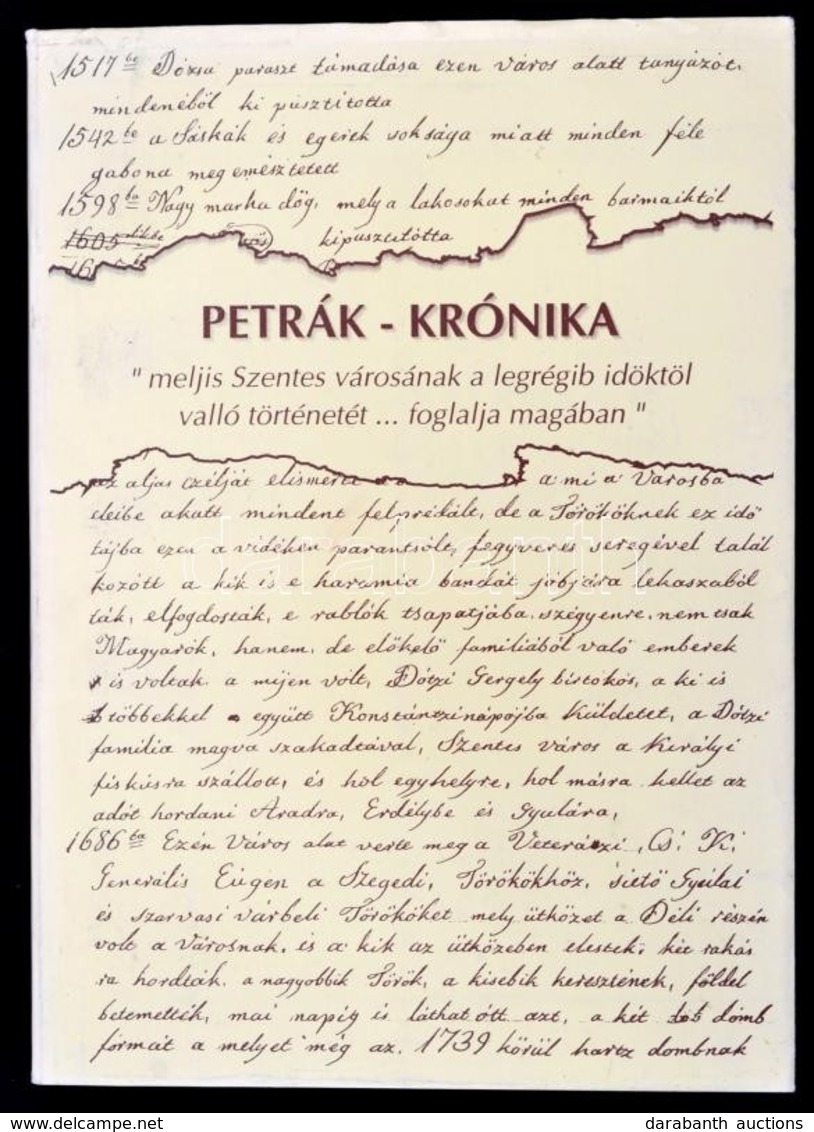 1517 be Dózsa paraszt támadása ezen város alatt tanyázot.
mindenéböl ki pusztitotta
1542 be a Sáskák és egerek soksága miatt minden féle
gabona meg emésztetett
1598 ba Nagy marha dög, mely a lakosokat minden barmaiktól
1605 kipusztitotta
PETRÁK - KRÓNIKA
" meljis Szentes városának a legrégib idöktöl
valló történetét ... foglalja magában "
az aljas czélját elismert a mi a Városba
cleibe akatt mindent felprédált, de a Törököknek ez idö
tájba ezen a vidéken parantsólt, fegyveres seregével talál
kozótt a kik is e haramia bandát jóbjára lekaszaból
ták, elfogdosták, e rablók tsapatjába szégyenre, nem tsak
Magyarók, hanem, de elökelö familiából való emberek
is voltak. a mijen vólt, Dótzi Gergely birtokós, a ki is
többekkel együtt Konstántzinápojba Küldetet, a Dótzi
familia magva szakadtával, Szentes város a Királyi
fiskusra szállott, és hol egyhelyre, hol másra kellet az
adót hordani Aradra, Erdélybe és Gyulára,
1686 ba Ezen Város alat verte meg a Veterázi, Cs. K.
Generális Eugen a Szegedi, Törökökhöz, siető Gyulai
és szarvasi várbeli Törököket mely ütközet a Déli részén
volt a Városnak, is a kik az ütközeben elestek, két rakás
ra hordták. a nagyobbik Török, a kisebik keresztének, földel
betemették, mai napig is láthat ótt azt, a két domb
formát a melyet még az. 1739 körül hartz dombnak
darabanth
darabanth auctions
www.delcampe.net